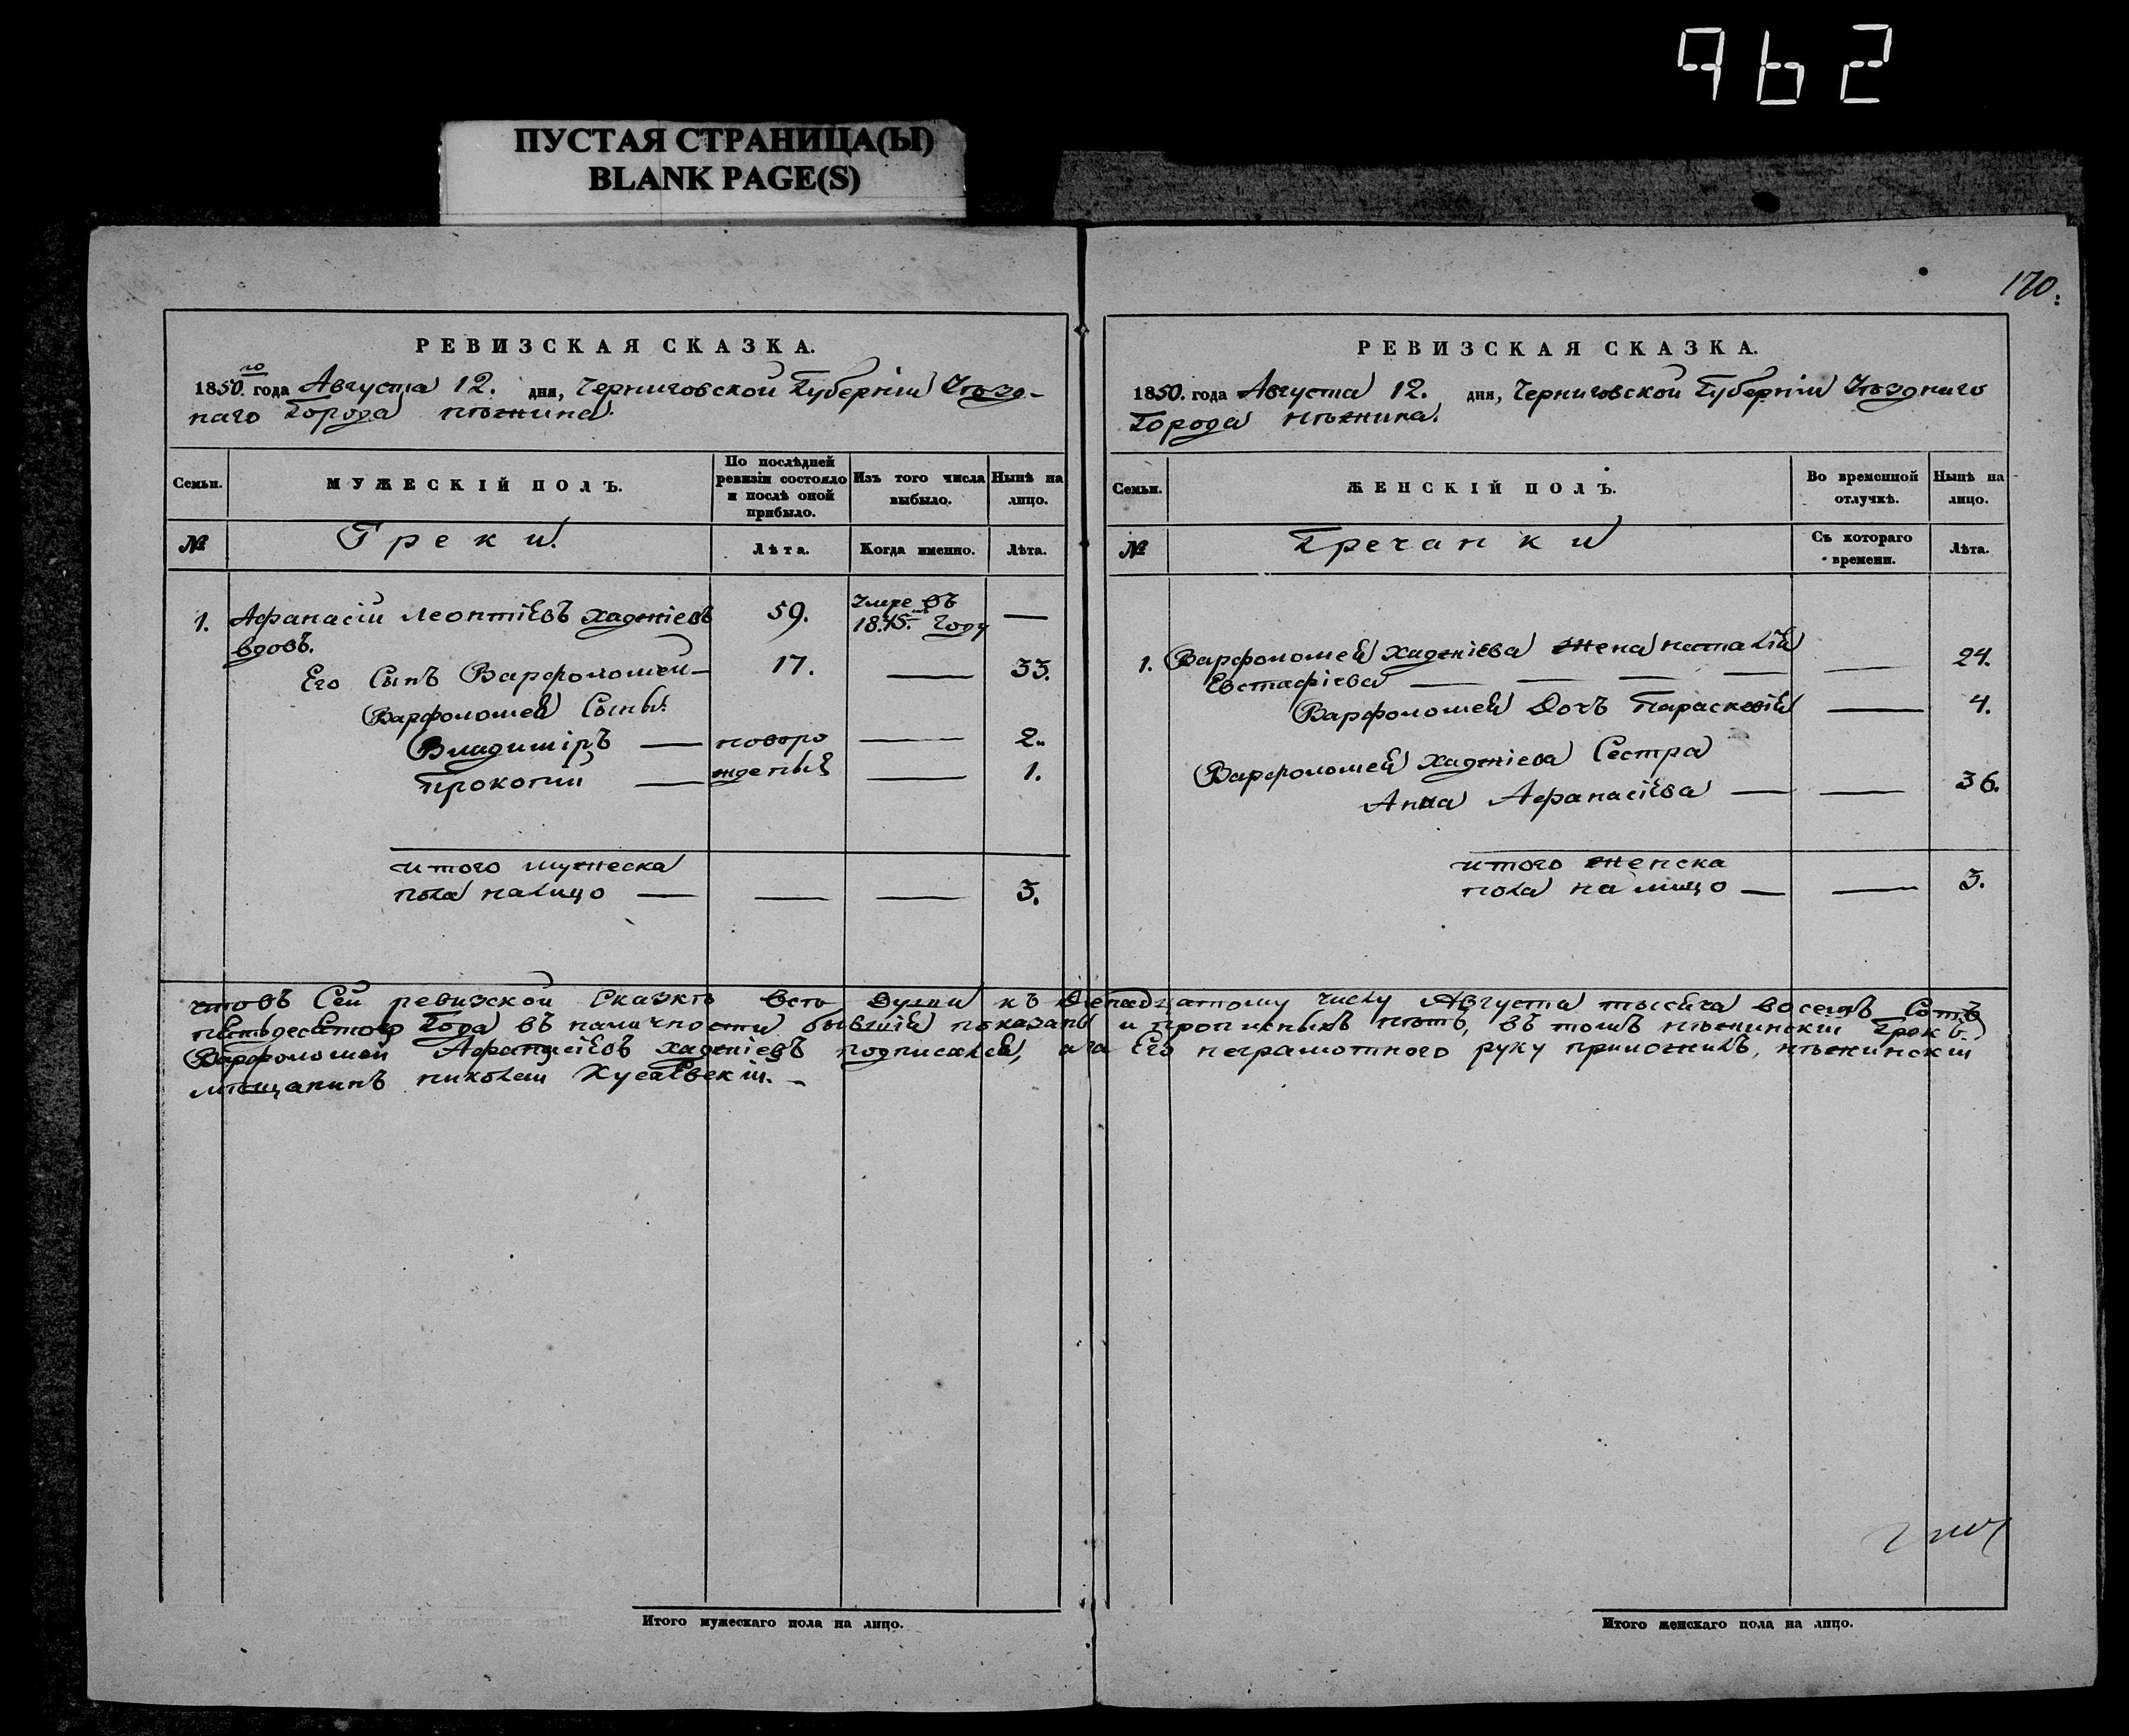 962
ПУСТАЯ СТРАНИЦА(Ы)
BLANK PAGE(S)
РЕВИЗСКАЯ СКАЗКА.
1850.го года Августа 12. дня, Черниговской Губерніи Уѣзд-
наго Города Нѣжина.
Семьи.
МУЖЕСКІЙ ПОЛЪ.
По послѣдней ревизіи состояло и послѣ оной прибыло.
Изъ того числа выбыло.
Нынѣ на лицо.
№
Греки.
Лѣта.
Когда именно.
Лѣта.
1. Афанасій Леонтіевъ Хаджіевъ 59. Умре въ 1845. году —
вдовъ.
Его Сынъ Варфоломей — 17. — 33.
Варфоломея Сыны:
Владиміръ — новоро — 2.
Прокопій — жденые — 1.
итого мужеска
пола налицо — — — 3.
170.
РЕВИЗСКАЯ СКАЗКА.
1850. года Августа 12. дня, Черниговской Губерніи Уѣзднаго
Города Нѣжина.
Семьи.
ЖЕНСКІЙ ПОЛЪ.
Во временной отлучкѣ.
Нынѣ на лицо.
№
Гречанки
Съ котораго времени.
Лѣта.
1. Варфоломея Хаджіева Жена Наталія
Евстафіева — — — — — 24.
Варфоломея Дочъ Параскевія — 4.
Варфоломея Хаджіева Сестра
Анна Афанасіева — — 36.
итого женска
пола на лицо — — 3.
что въ Сей ревизской Сказкѣ всѣ души къ двенадцатому числу Августа тысяча восемъ Сотъ
пятьдесятого Года въ наличности бывшія показаны и прописныхъ нѣтъ, въ томъ нѣжинскій Грекъ
Варфоломей Афанасіевъ Хаджіевъ подписался, а за Его неграмотного руку приложилъ, нѣжинскій
мѣщанинъ николай
Итого мужескаго пола на лицо.
Итого женскаго пола на лицо.